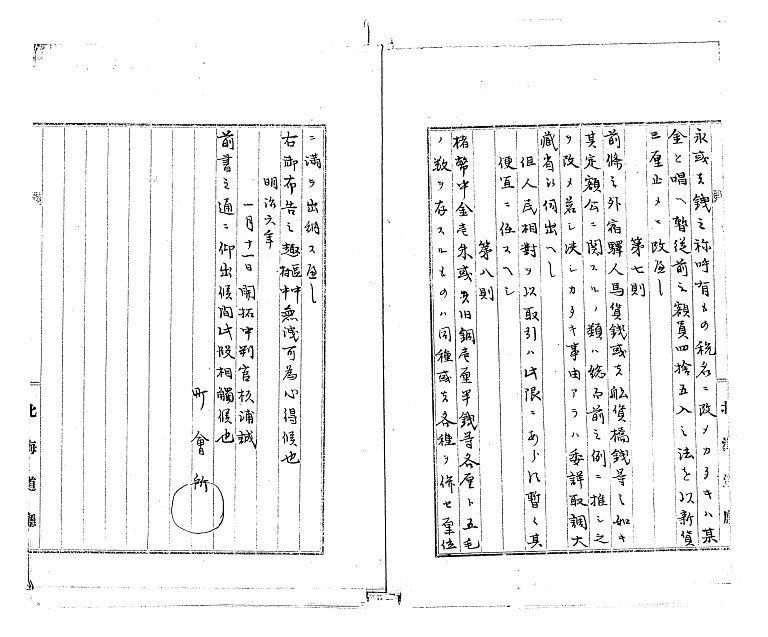 永或ハ銭之称呼有ルもの税名ニ改メカタキハ某
金と唱へ暫従前之額員四捨五入之法を以新貨
三厘止メニ改ヘし
第七則
前條之外宿驛人馬賃銭或ハ舩賃橋銭等之如キ
其定額公ニ関スルノ類ハ総而前之例ニ推し之
ヲ改メ若し決しカタキ事由アラハ委詳取調大
蔵省江伺出ヘし
但人民相對ヲ以取引ハ此限ニあらす暫く其
便宜ニ任スヘシ
第八則
楮幣中金壱朱或ハ旧銅壱厘半銭等各厘ト五毛
ノ数ヲ存スルものハ同種或ハ各種ヲ併セ厘位
ニ満ヲ出納スヘし
右御布告之趣區中無洩可為心得候也
明治六年
一月十一日 開拓中判官杉浦誠
前書之通ニ仰出候間此段相觸候也
町會所
北海道廳
北海道廳